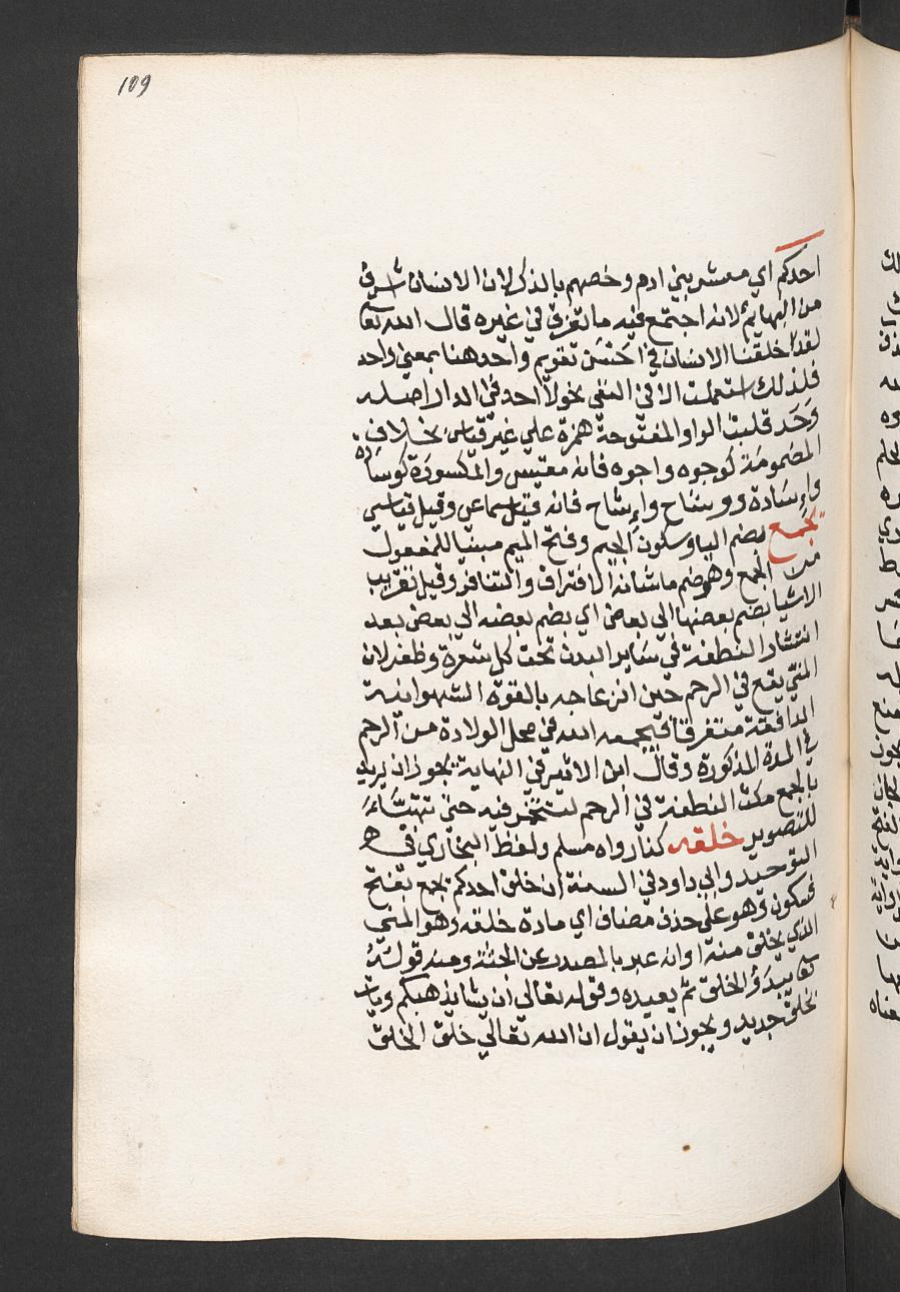 109
احدكم اي معشر بني ادم وخصهم بالذكر لان الانسان اشرف
من البهايم لانه اجتمع فيه ما تفرق في غيره قال الله تعا
لقد خلقنا الانسان في احسن تقويم واحد هنا بمعني واحد
فلذلك استعملت الا في النفي نحو لا احد في الدار اصله
وحد قلبت الواو المفتوحة همزة علي غير قياس بخلاف
المضمومة كوجوه واجوه فانه مقيس والمكسورة كوسادة
واسادة ووشاح واشاح فانه قيل سماعي وقيل قياسي
يجمع بضم اليا وسكون الجيم وفتح الميم مبنيا للمفعول
من الجمع وهو ضم ما شانه الافتراق والتنافر وقيل تقريب
الاشيا بضم بعضها الي بعض اي يضم بعضه الي بعض بعد
انتشار النطفة في ساير البدن تحت كل شعرة وظفر لان
المني يقع في الرحم حين انزعاجه بالقوة الشهوانية
الدافعة متفرقا فيجمعه الله في محل الولادة من الرحم
في المدة المذكورة وقال ابن الاثير في النهاية يجوز ان يريد
بالجمع مكث النطفة في الرحم لتتخمر فيه حتي تتهيأ
للتصوير خلقه كذا رواه مسلم ولفظ البخاري في
التوحيد وابي داود في السنة ان خلق احدكم يجمع بفتح
فسكون وهو علي حذف مضاف اي مادة خلقه وهو المني
الذي يخلق منه او انه عبر بالمصدر عن الجثة ومنه قوله
تعا يبدؤ الخلق ثم يعيده وقوله تعالي ان يشا يذهبكم ويات
بخلق جديد ويجوز ان يقول ان الله تعالي خلق الخلق